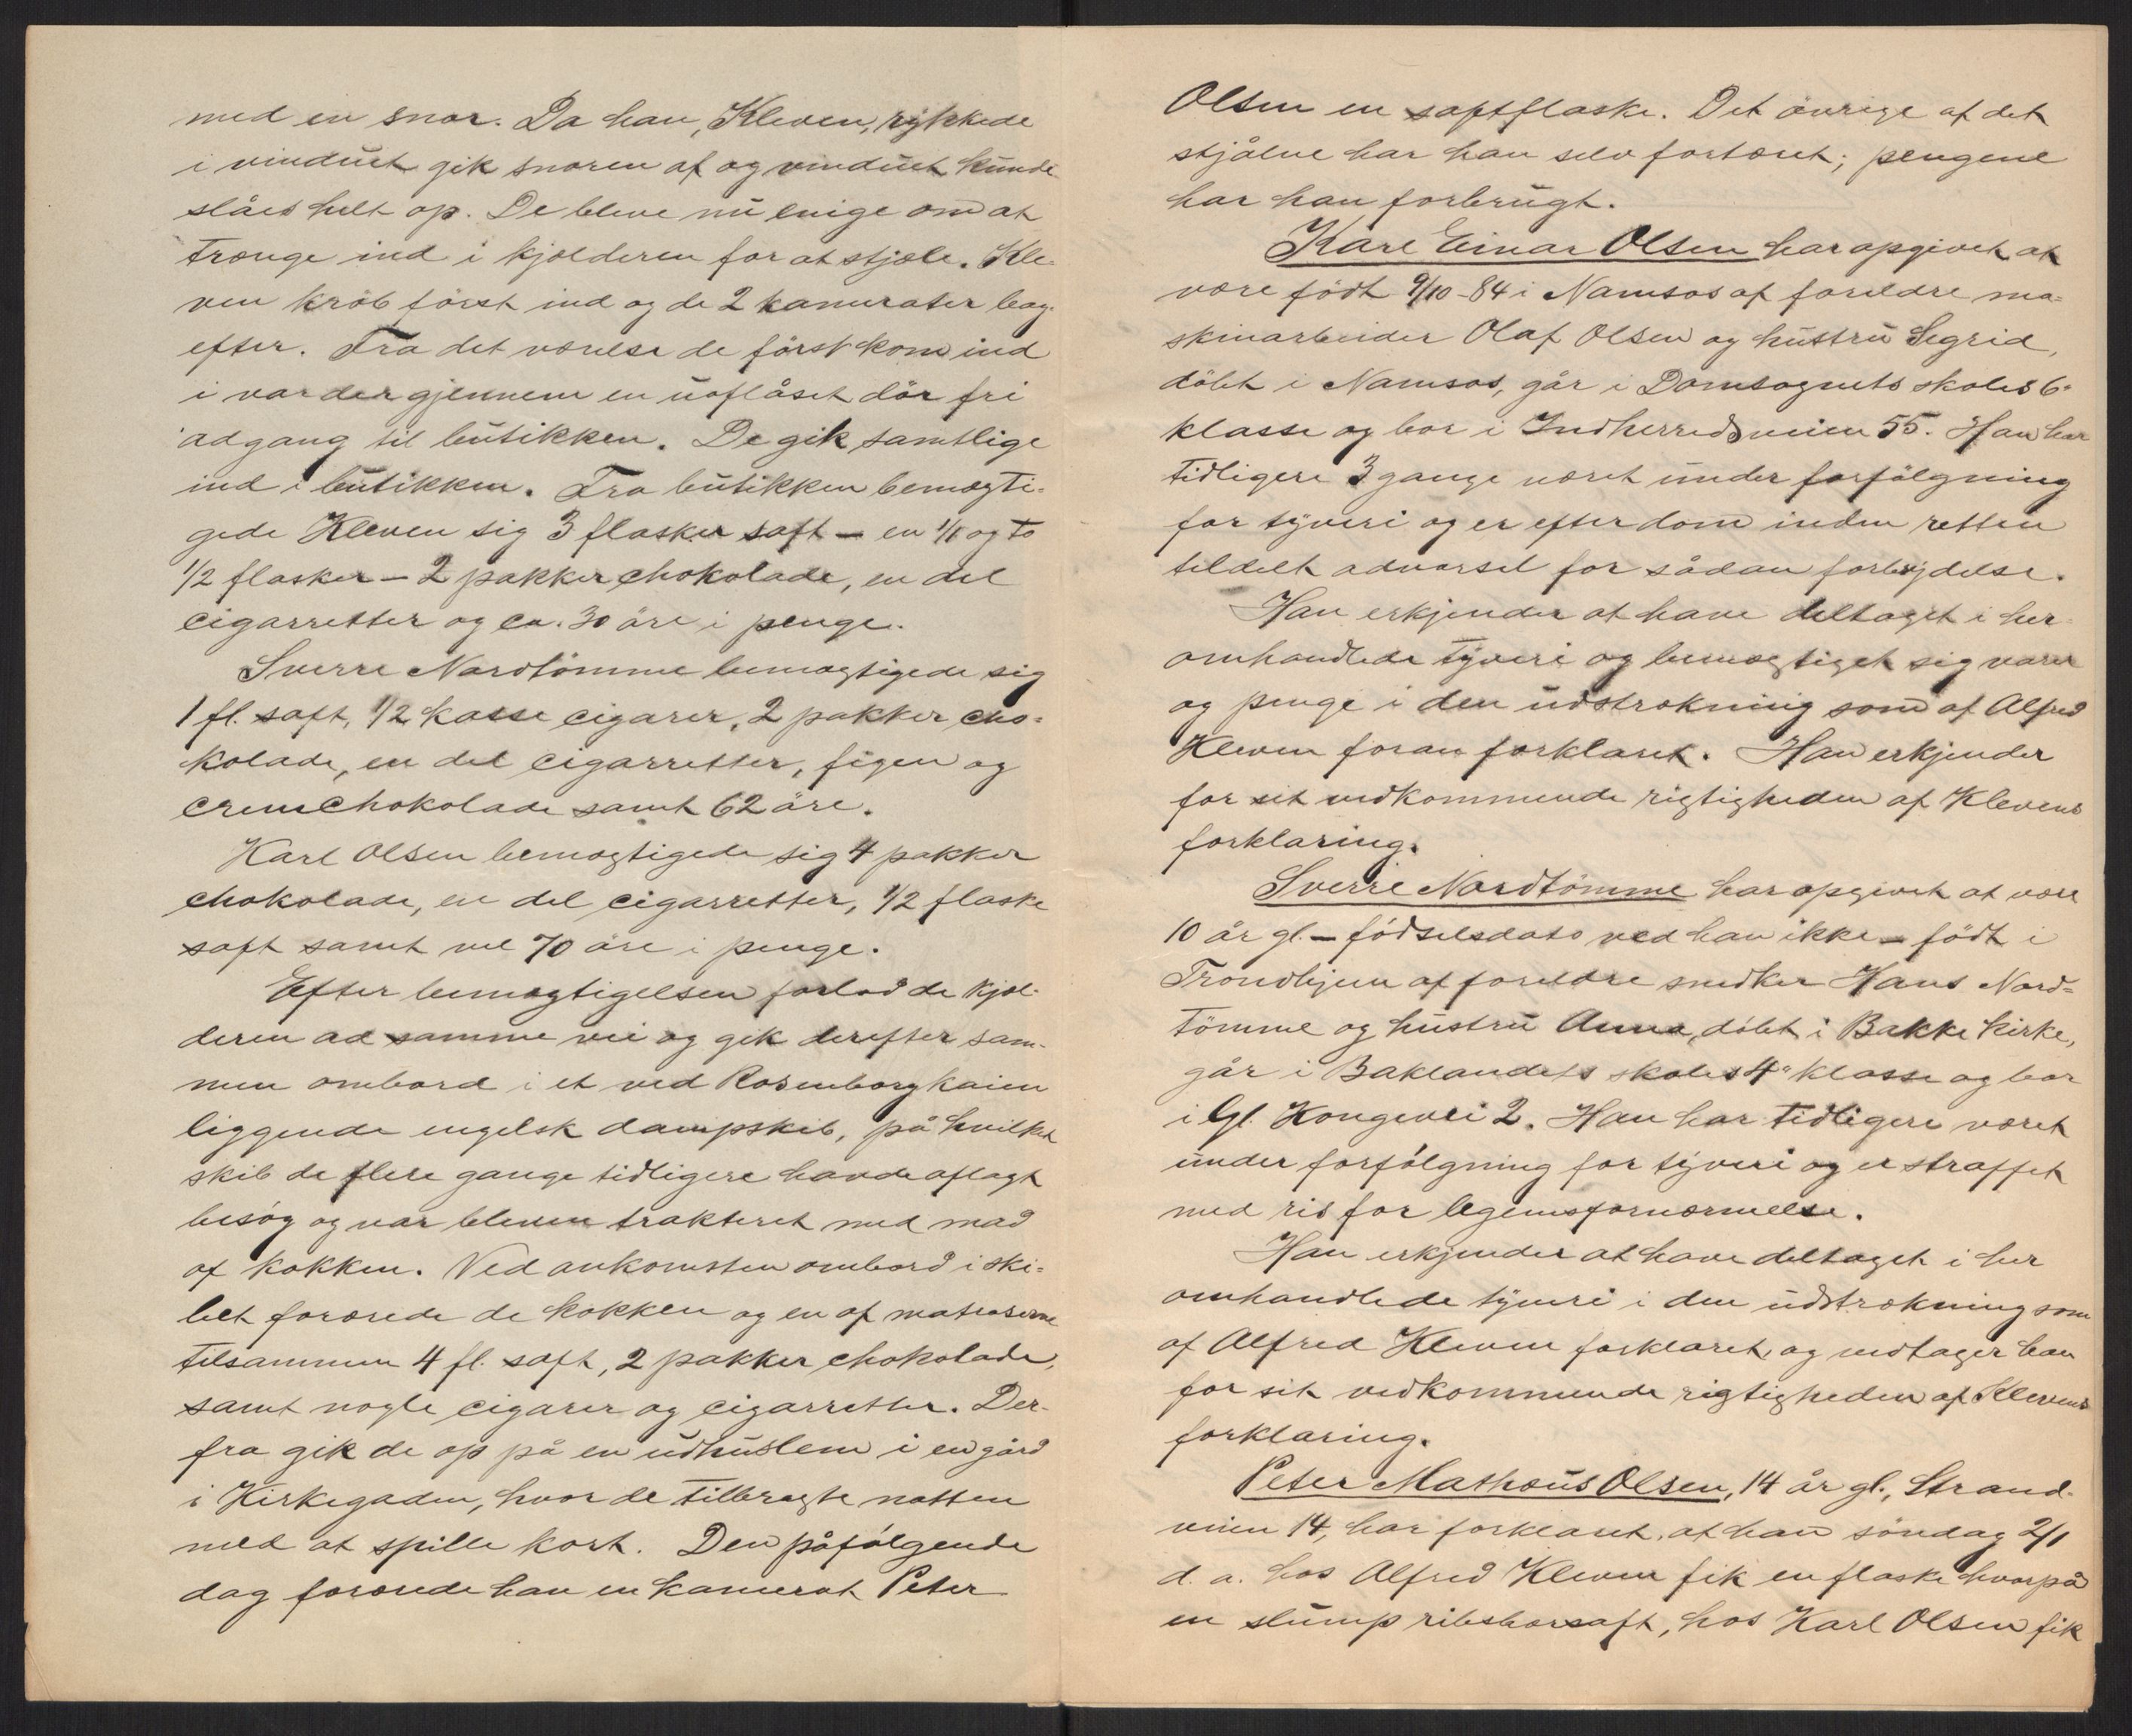 med en snor. Da han, Kleven, rykkede
i vinduet gik snoren af og vinduet kunde
slåes helt op. De bleve nu enige om at
trænge ind i kjælderen for at stjæle. Kle-
ven krøb först ind og de 2 kamerater bag-
efter. Fra det værelse de først kom ind
i var der gjennem en uaflåset dör fri
adgang til butikken. De gik samtlige
ind i butikken. Fra butikken bemægti-
gede Kleven sig 3 flasker saft – en 1/1 og to
1/2 flasker – 2 pakker chokolade, en del
cigarretter og ca. 30 öre i penge.
Sverre Nordtömme bemægtigede sig
1 fl. saft, 1/2 kasse cigarer, 2 pakker cho-
kolade, en del cigarretter, figen og
cremchokolade samt 62 öre.
Karl Olsen bemægtigede sig 4 pakker
chokolade, en del cigarretter, 1/2 flaske
saft samt vel 70 öre i penge.
Efter bemægtigelsen forlod de kjæl-
deren ad samme vei og gik derefter sam-
men ombord i et ved Rosenborgkaien
liggende engelsk dampskib, på hvilket
skib de flere gange tidligere havde aflagt
besøg og var bleven trakteret med mad
af kokken. Ved ankomsten ombord i ski-
bet forærede de kokken og en af matroserne
tilsammen 4 fl. saft, 2 pakker chokolade,
samt nogle cigarer og cigarretter. Der-
fra gik de op på en udhuslem i en gård
i Kirkegaden, hvor de tilbragte natten
med at spille kort. Den påfølgende
dag forærede han en kamerat Peter
Olsen en saftflaske. Det övrige af det
stjålne har han selv fortæret; pengene
har han forbrugt.
Kare Einar Olsen har opgivet at
være födt 9/10-84 i Namsos af forældre ma-
skinarbeider Olaf Olsen og hustru Segrid,
döbt i Namsos, går i Domsognets skoles 6te
klasse og bor i Indherredsveien 55. Han har
tidligere 3 gange været under forfölgning
for tyveri og er efter dom inden retten
tildelt advarsel for sådan forbrydelse.
Han erkjender at have deltaget i her-
omhandlede tyveri og bemægtiget sig varer
og penge i den udstrækning som af Alfred
Kleven foran forklaret. Han erkjender
for sit vedkommende rigtigheden af Klevens
forklaring.
Sverre Nordtömme har opgivet at være
10 år gl. – fødselsdato ved han ikke – födt i
Trondhjem af forældre snedker Hans Nord-
tömme og hustru Anna, døbt i Bakke kirke,
går i Baklandets skoles 4de klasse og bor
i Gl. Kongevei 2. Han har tidligere været
under forfølgning for tyveri og er straffet
med ris for legemsfornærmelse.
Han erkjender at have deltaget i her
omhandlede tyveri i den udstrækning som
af Alfred Kleven forklaret, og vedtager han
for sit vedkommende rigtigheden af Klevens
forklaring.
Peter Mathæus Olsen, 14 år gl., Strand-
veien 14, har forklaret, at han söndag 2/1
d. a. hos Alfred Kleven fik en flaske hvorpå
en slump ribsbærsaft, hos Karl Olsen fik